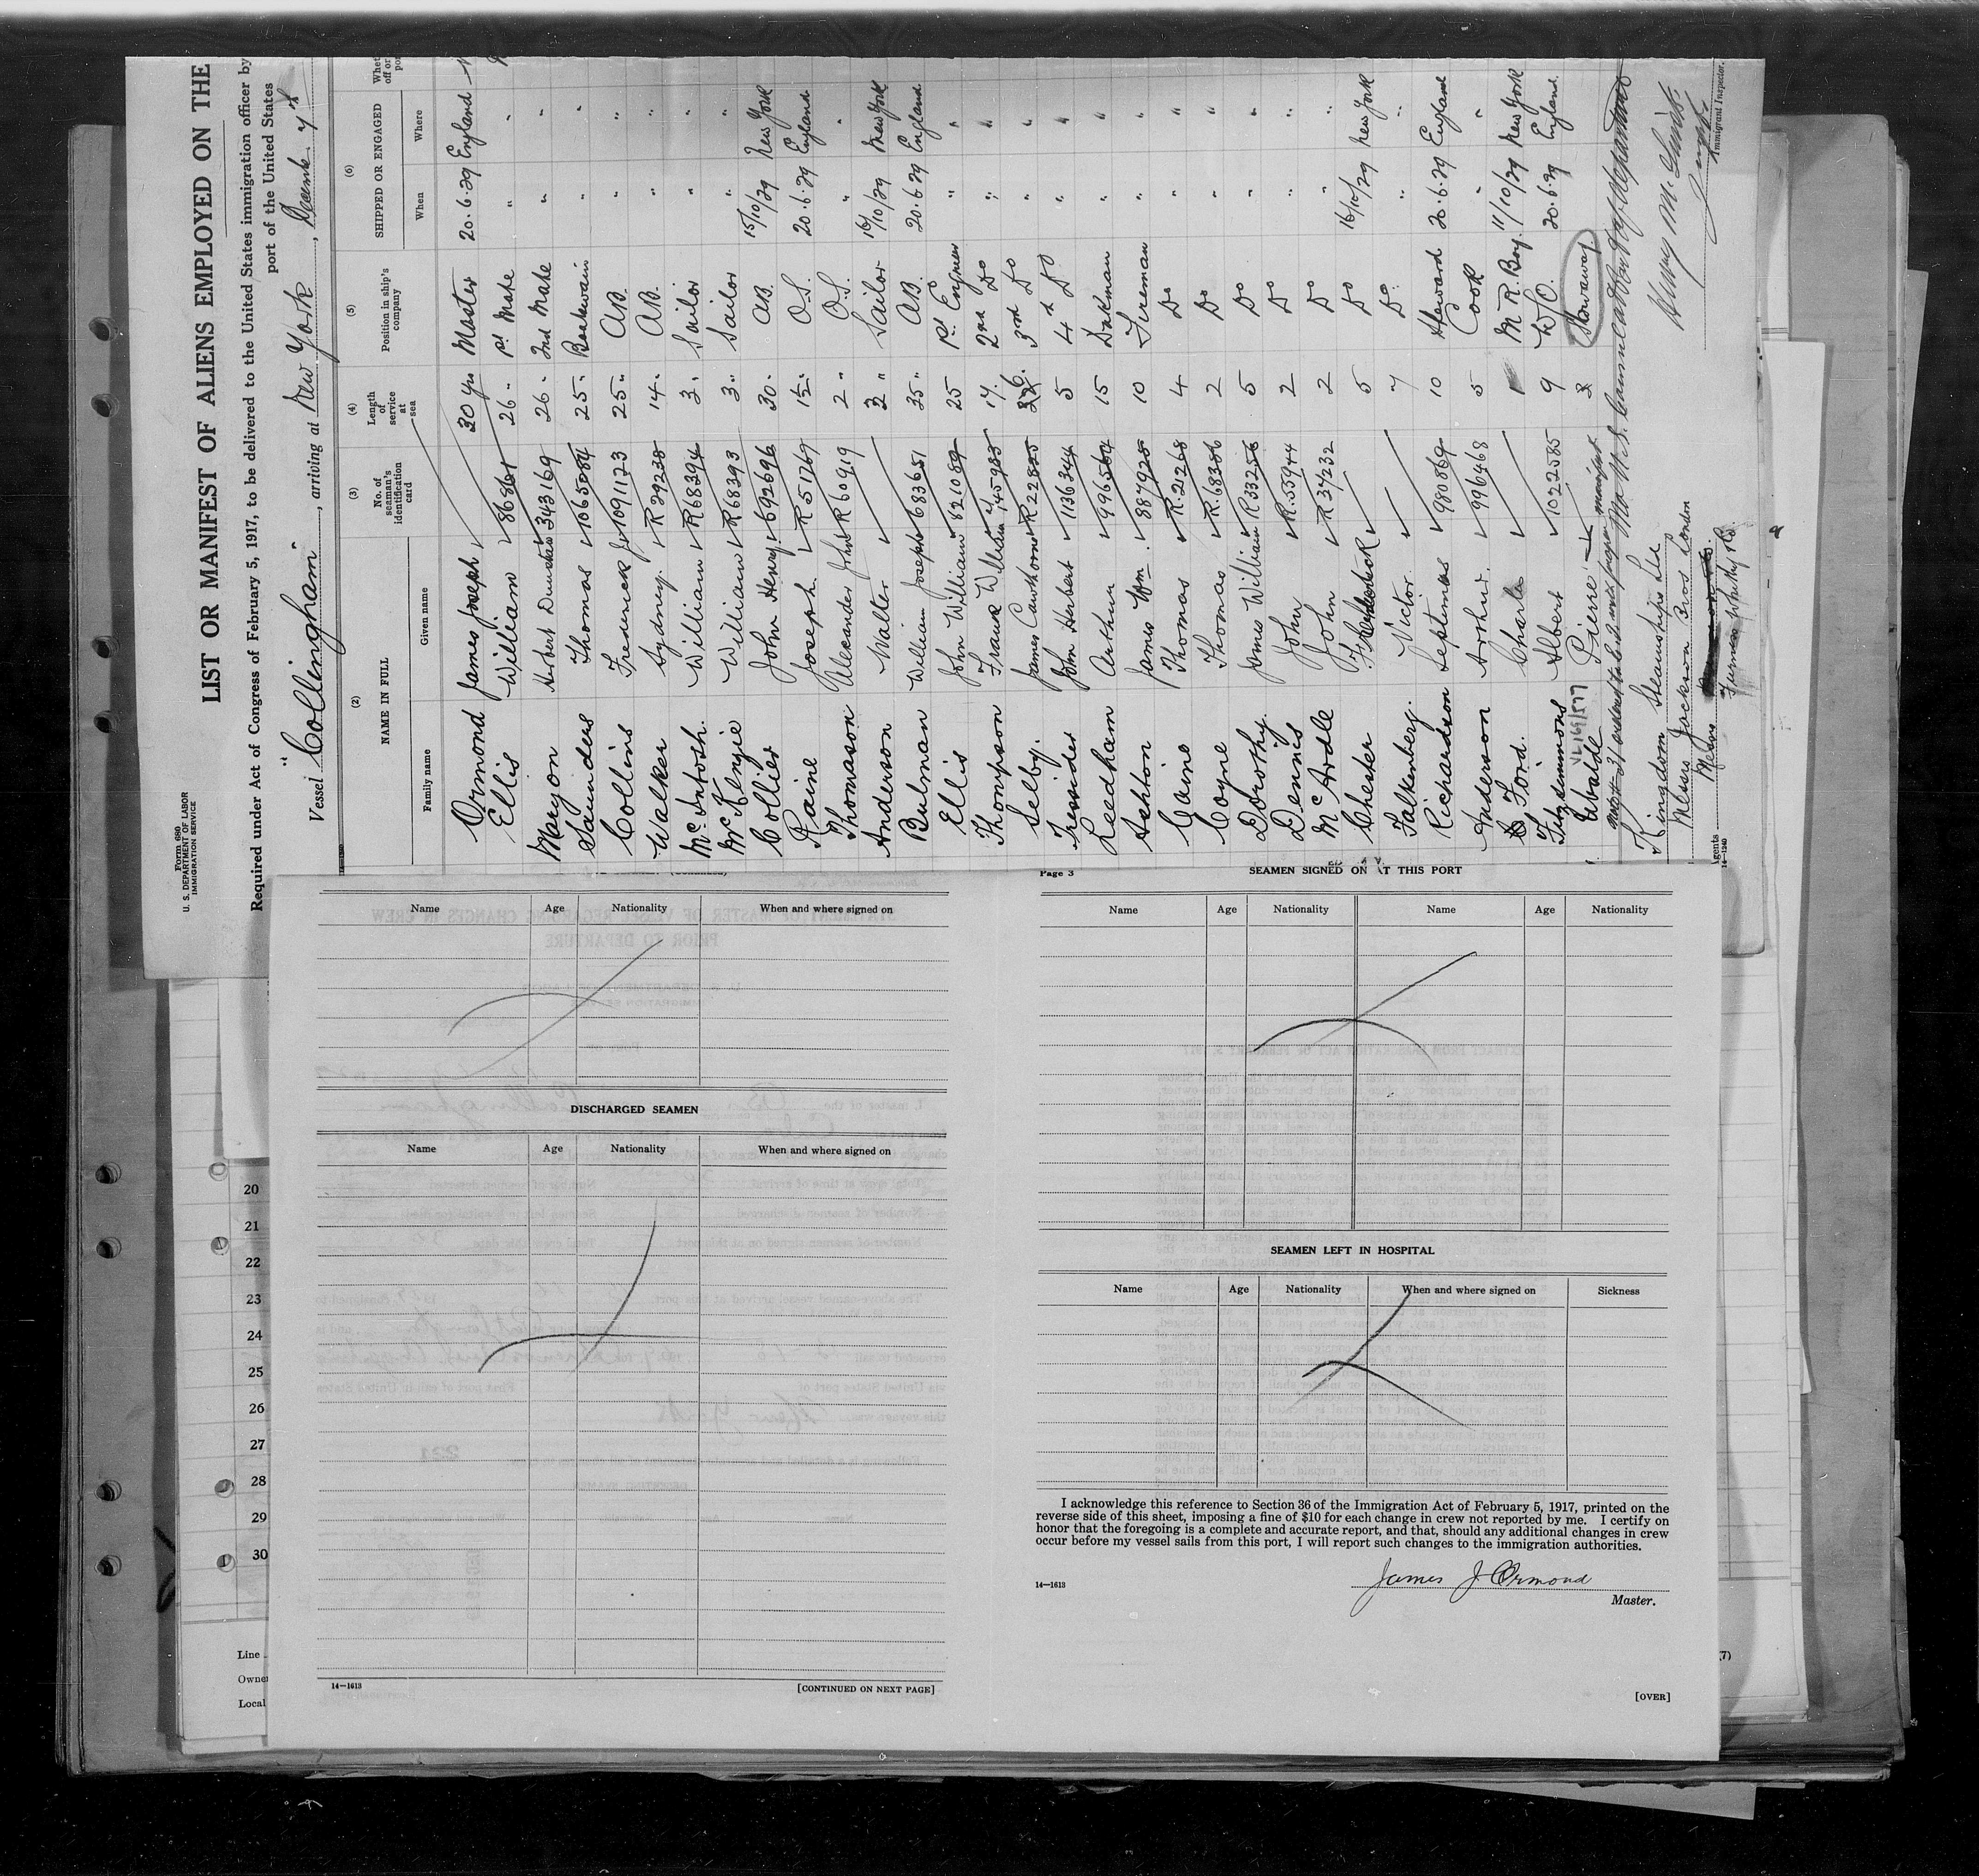 Form 680
U. S. DEPARTMENT OF LABOR
IMMIGRATION SERVICE
LIST OR MANIFEST OF ALIENS EMPLOYED ON THE
Required under Act of Congress of February 5, 1917, to be delivered to the United States immigration officer by
port of the United States
Vessel "Collingham", arriving at New York,
(2) (3) (4) (5) (6)
NAME IN FULL No. of seaman's identification card Length of service at sea Position in ship's company SHIPPED OR ENGAGED
Family name Given name When Where
Ormond James Joseph 30 yrs Master 20.6.29 England
Ellis William 868641 26 " 1st Mate " "
Maryon 343169 26 " 2nd Mate " "
Saunders Thomas 1065084 25 " Boatswain " "
Collins Frederick 1091173 25 " A.B. " "
Walker Sydney. R39238 14 " A.B. " "
McIntosh. William R68394 3 " Sailor " "
McKenzie William R68393 3 " Sailor " "
Collier John Henry 692696 30 " A.B. 15/10/29 New York
Raine Joseph. R51769 15 " O.S. 20.6.29 England
Thomason Alexander John R60919 2 " O.S. " "
Anderson Walter 2 " Sailor 16/10/29 New York
Bulman William Joseph 683651 35 " A.B. 20.6.29 England
Ellis John William 821089 25 1st Engineer " "
Thompson Frank William 745985 17. 2nd Do " "
Selby. James Cawthorne R22825 6. 3rd Do " "
Tressider John Herbert 1136344 5 4th Do " "
Leedham Arthur 996564 15 Dnkman " "
Ashton James Wm. 887925 10 Fireman " "
Caine Thomas R.21268 4 Do " "
Coyne Thomas R.68386 2 Do " "
Dorothy. James William R33256 5 Do " "
Dennis John R.55944 2 Do " "
McArdle John R37232 2 Do " "
Chester 5 Do 16/10/29 New York
Falkenberg. Victor. 7 Do " "
Richardson Septimas 980869 10 Steward 20.6.29 England
Anderson Arthur. 996468 5 Cook " "
Ford. Charles M.R. Boy. 11/10/29 New York
Fitzsimmons Albert 1022585 9 W/O. 20.6.29 England.
Pierre Stowaway
Kingdom Steamships Ltd
Messrs Jackson Bros London
Messrs
Agents
14—1240
Immigrant Inspector.
Name Age Nationality When and where signed on
DISCHARGED SEAMEN
Name Age Nationality When and where signed on
14—1613 [CONTINUED ON NEXT PAGE]
Page 3 SEAMEN SIGNED ON AT THIS PORT
Name Age Nationality Name Age Nationality
SEAMEN LEFT IN HOSPITAL
Name Age Nationality When and where signed on Sickness
I acknowledge this reference to Section 36 of the Immigration Act of February 5, 1917, printed on the
reverse side of this sheet, imposing a fine of $10 for each change in crew not reported by me. I certify on
honor that the foregoing is a complete and accurate report, and that, should any additional changes in crew
occur before my vessel sails from this port, I will report such changes to the immigration authorities.
James J Ormond
14—1613 Master.
[OVER]
20
21
22
23
24
25
26
27
28
29
30
Line
Owne
Local
(7)